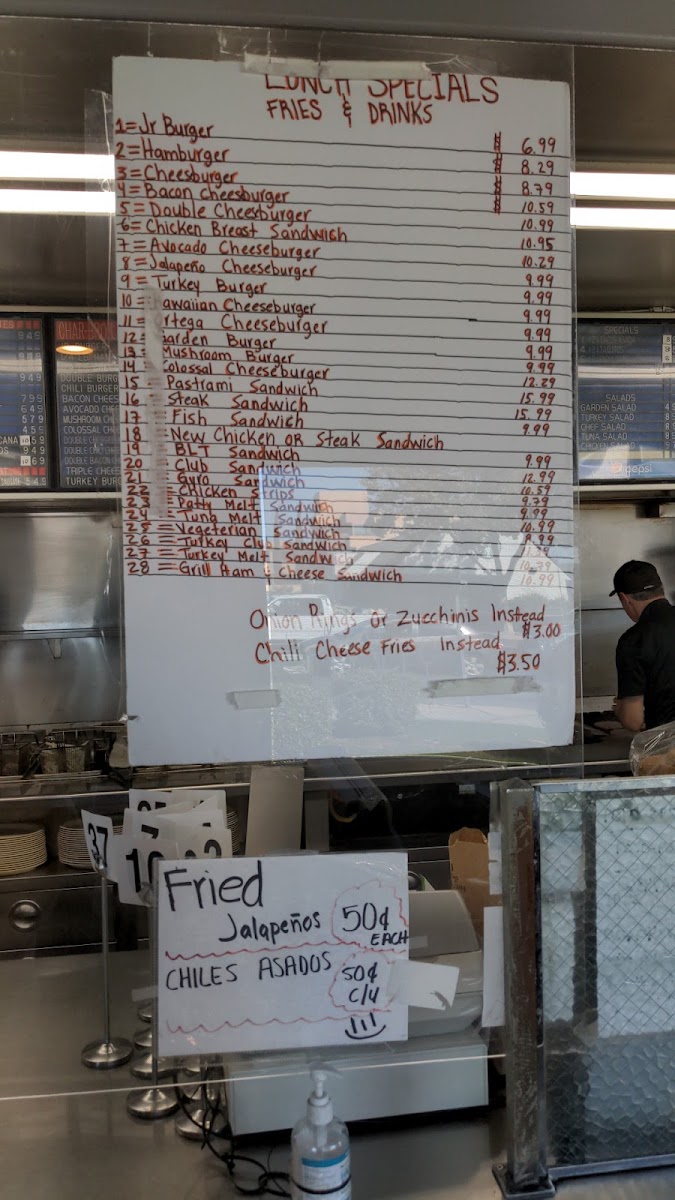 LUNCH SPECIALS
FRIES & DRINKS
1=Jr Burger $ 6.99
2=Hamburger $ 8.29
3=Cheesburger $ 8.79
4=Bacon cheesburger $ 10.59
5=Double Cheesburger 10.99
6=Chicken Breast Sandwich 10.95
7=Avocado Cheeseburger 10.29
8=Jalapeño Cheeseburger 9.99
9=Turkey Burger 9.99
10=Hawaiian Cheeseburger 9.99
11=Ortega Cheeseburger 9.99
12=Garden Burger 9.99
13=Mushroom Burger 9.99
14 Colosal Cheeseburger 12.29
15=Pastrami Sandwich 15.99
16=Steak Sandwich 15.99
17 Fish Sandwich 9.99
18 =New Chicken or Steak Sandwich
19 BLT Sandwich 9.99
20=Club Sandwich 12.99
21=Gyro Sandwich 10.59
22=Chicken Strips 9.79
23=Patty Melt Sandwich 9.99
24=Tuna Melt Sandwich 10.99
25=Vegeterian Sandwich 8.99
26=Turkey Club Sandwich
27=Turkey Melt Sandwich 10.79
28=Grill Ham & Cheese Sandwich 10.99
Onion Rings or Zucchinis Instead
$3.00
Chili Cheese Fries Instead
$3.50
CHAR-BRO
DOUBLE BURG
CHILI BURGER
BACON CHEES
AVOCADO CHE
MUSHROOM CH
COLOSSAL C
DOUBLE CH
DOUBLE BACON
TRIPLE CHEE
TURKEY BURG
SPECIALS
SALADS
GARDEN SALAD
TURKEY SALAD
CHEF SALAD
TUNA SALAD
CHICKEN SALAD
pepsi
37
7
10
Fried
Jalapeños 50¢
EACH
CHILES ASADOS 50¢
C/U